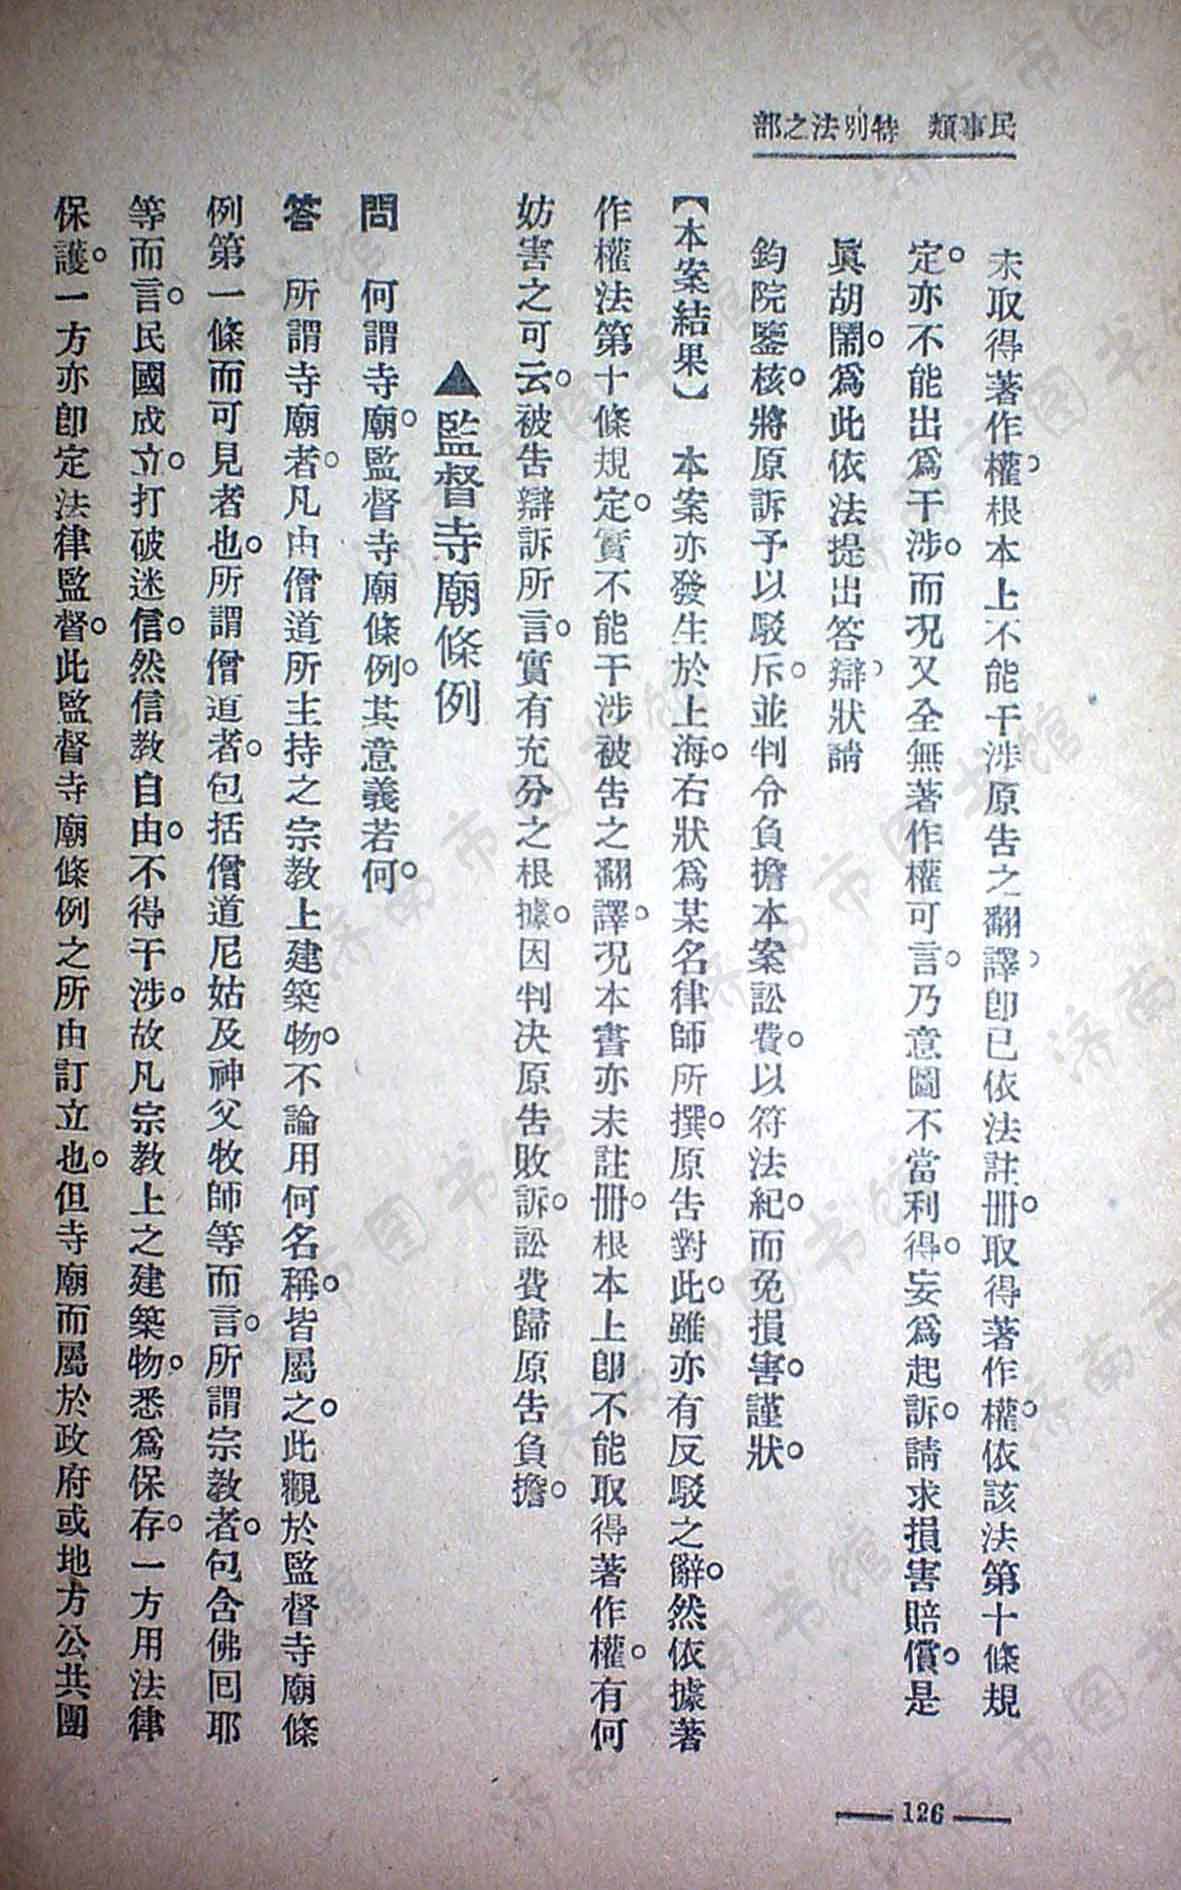 民事類　特別法之部
未取得著作權。根本上不能干涉原告之翻譯。卽已依法註冊。取得著作權。依該法第十條規
定。亦不能出爲干涉。而況又全無著作權可言。乃意圖不當利得。妄爲起訴。請求損害賠償。是
眞胡鬧。爲此依法提出答辯。狀請
鈞院鑒核。將原訴予以駁斥。並判令負擔本案訟費。以符法紀。而免損害。謹狀。
【本案結果】　本案亦發生於上海。右狀爲某名律師所撰。原告對此。雖亦有反駁之辭。然依據著
作權法第十條規定。實不能干涉被告之翻譯。況本書亦未註冊。根本上卽不能取得著作權。有何
妨害之可云。被告辯訴所言。實有充分之根據。因判決原告敗訴。訟費歸原告負擔。
▲監督寺廟條例
問　何謂寺廟。監督寺廟條例。其意義若何。
答　所謂寺廟者。凡由僧道所主持之宗教上建築物。不論用何名稱。皆屬之。此觀於監督寺廟條
例第一條而可見者也。所謂僧道者。包括僧道尼姑及神父牧師等而言。所謂宗教者。包含佛回耶
等而言。民國成立。打破迷信。然信教自由。不得干涉。故凡宗教上之建築物。悉爲保存。一方用法律
保護。一方亦卽定法律監督。此監督寺廟條例之所由訂立也。但寺廟而屬於政府或地方公共團
126
济南市图书馆